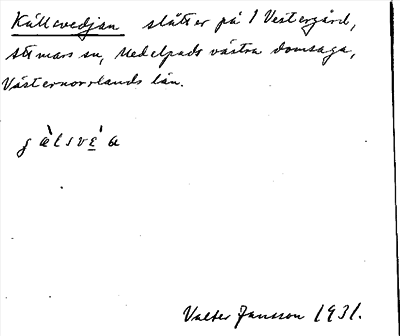 Källsvedjan slåtter på 1 Vestergård,
Attmars sn, Medelpads västra domsaga,
Västernorrlands län.
Valter Jansson 1931.